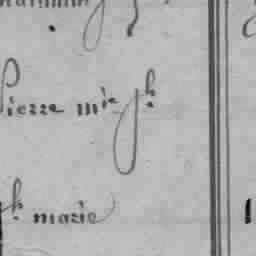 Pierre m^ie J^h
J^h marie